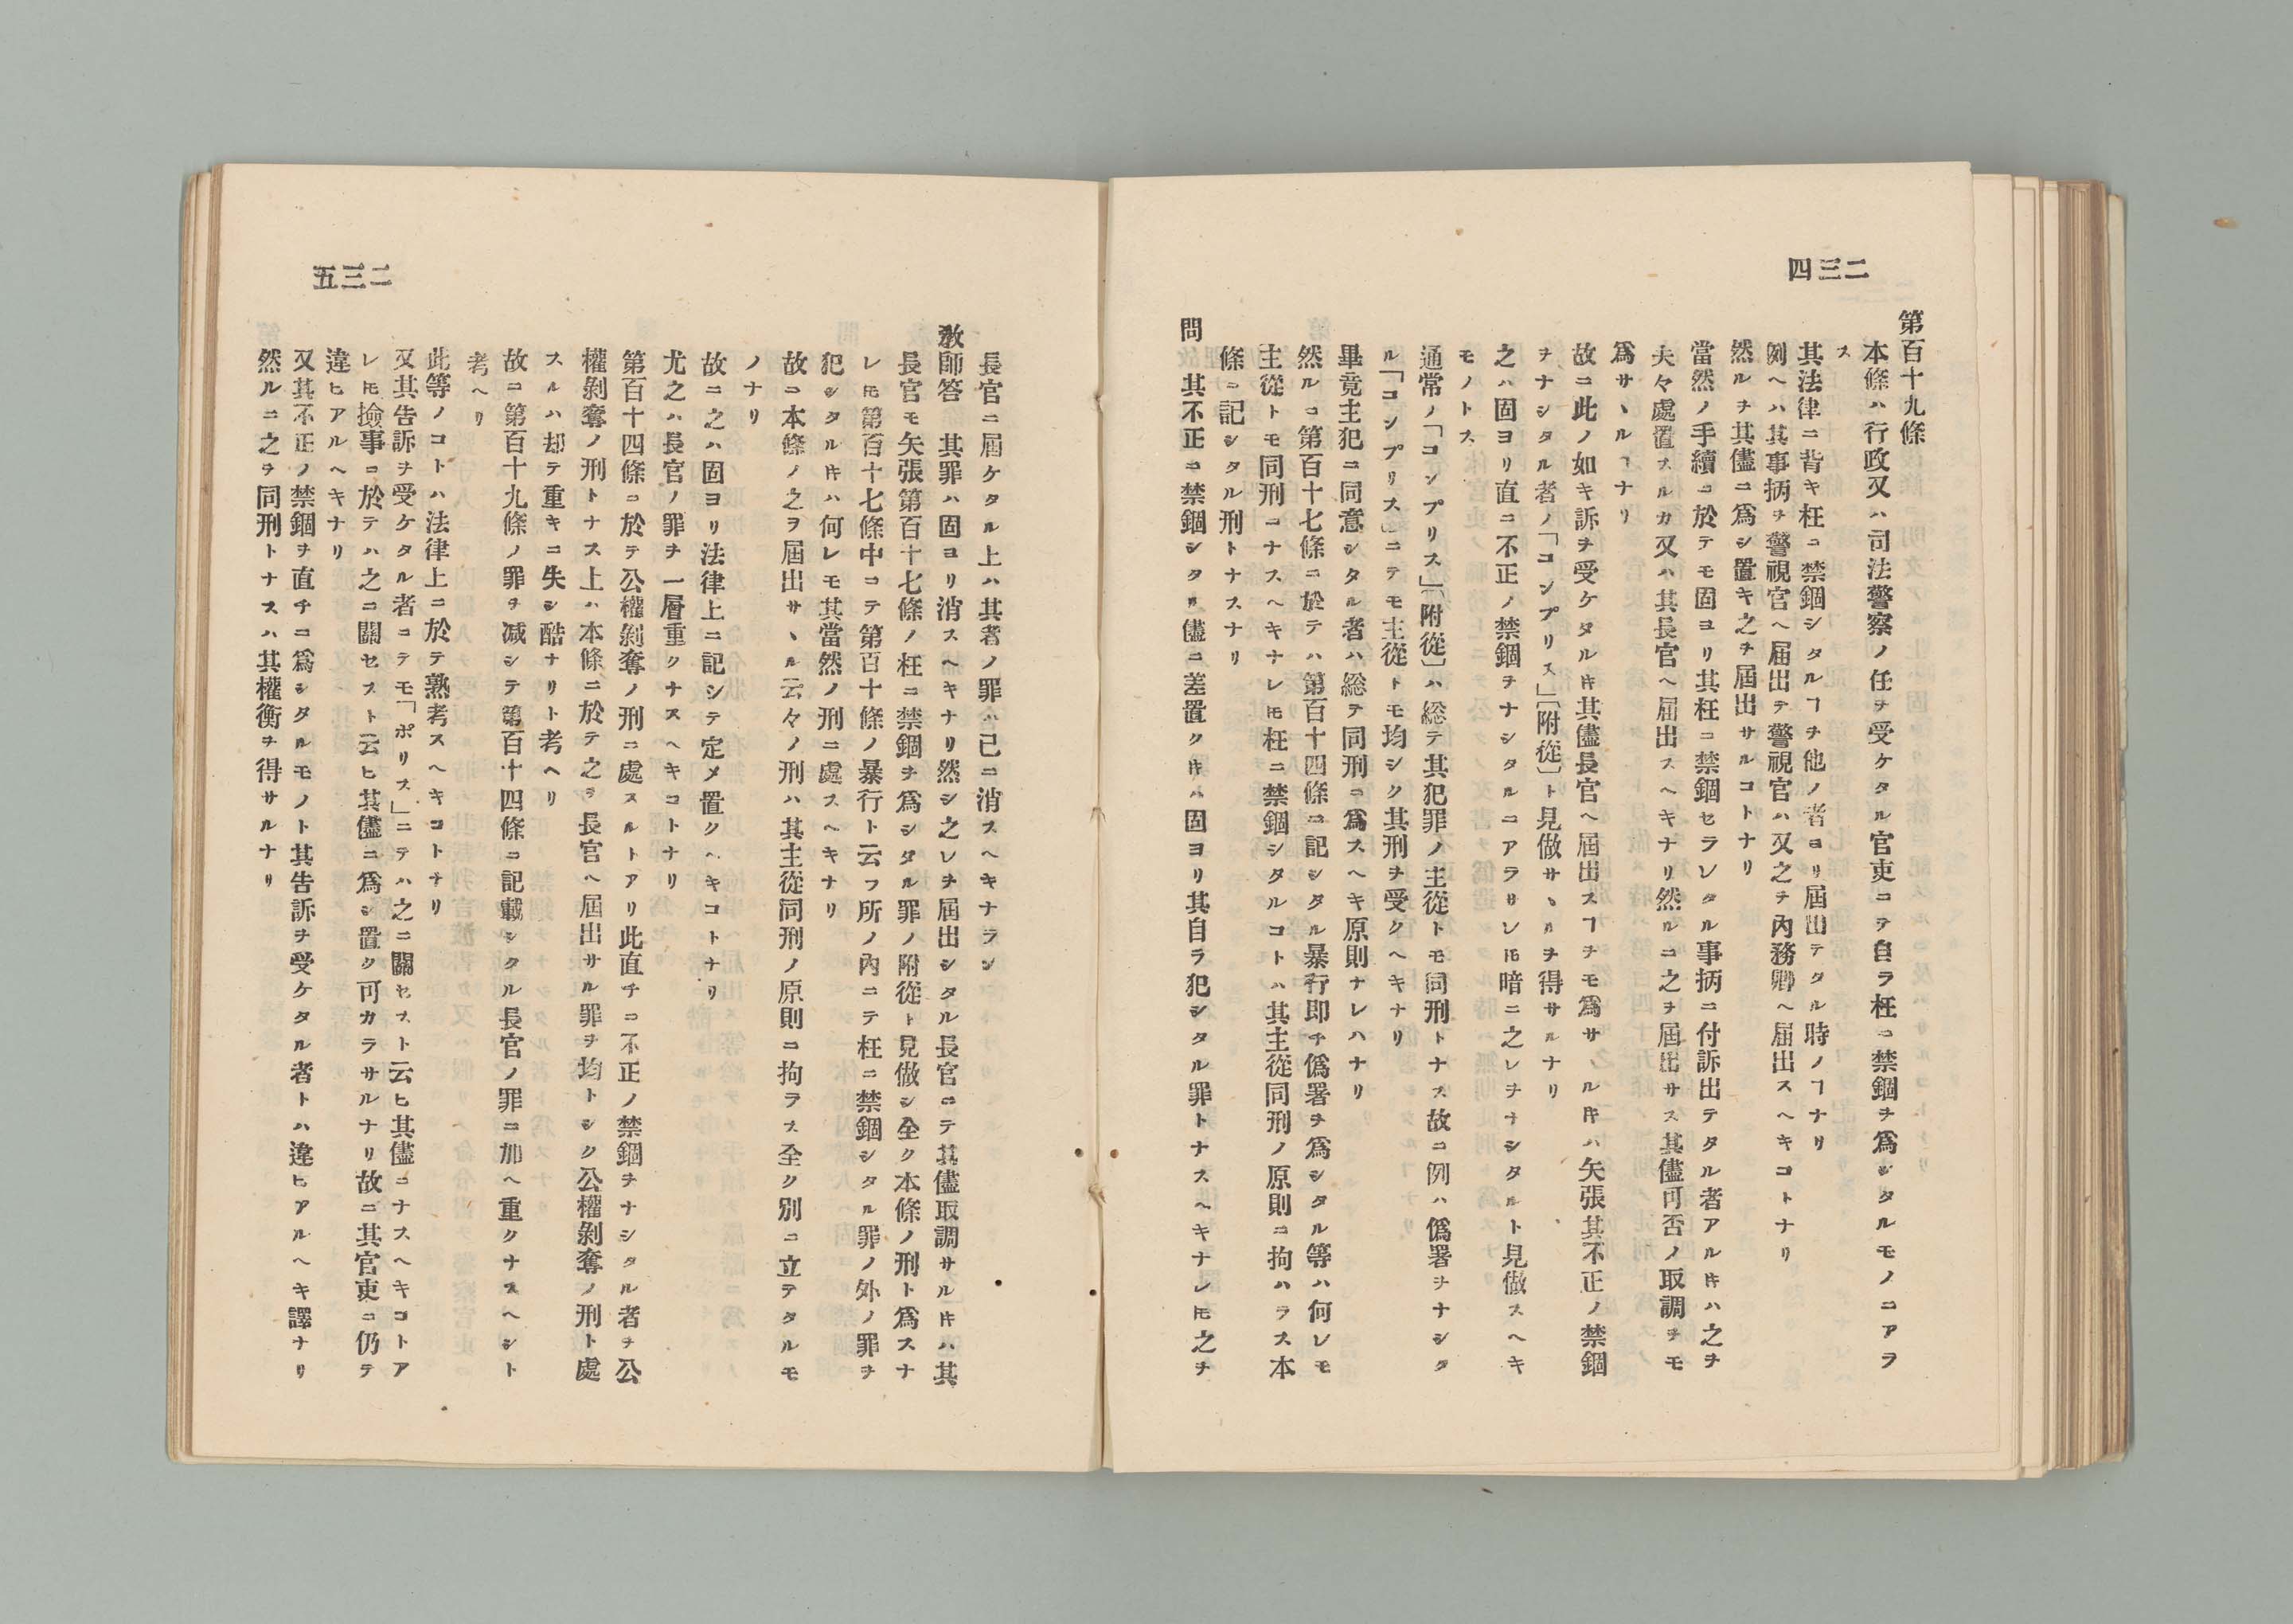 二三四
第百十九條
本條ハ行政又ハ司法警察ノ任ヲ受ケタル官吏ニテ自ラ枉ニ禁錮ヲ爲シタルモノニアラ
ス
其法律ニ背キ枉ニ禁錮シタルヿヲ他ノ者ヨリ屆出テタル時ノヿナリ
例ヘハ其事柄ヲ警視官ヘ屆出テ警視官ハ又之ヲ內務卿ヘ屆出スヘキコトナリ
然ルヲ其儘ニ爲シ置キ之ヲ屆出サルコトナリ
當然ノ手續ニ於テモ固ヨリ其枉ニ禁錮セラレタル事柄ニ付訴出テタル者アルㇳキハ之ヲ
夫々處置スルカ又ハ其長官ヘ屆出スヘキナリ然ルニ之ヲ屆出サス其儘可否ノ取調ヲモ
爲サヽルヿナリ
故ニ此ノ如キ訴ヲ受ケタルㇳキ其儘長官ヘ屆出スヿヲモ爲サヽルㇳキハ矢張其不正ノ禁錮
ヲナシタル者ノ「コンプリス」〔附從〕ト見做サヽルヲ得サルナリ
之ハ固ヨリ直ニ不正ノ禁錮ヲナシタルニアラサレㇳモ暗ニ之レヲナシタルト見做スヘキ
モノトス
通常ノ「コンプリス」〔附從〕ハ総テ其犯罪ノ主從トモ同刑トナス故ニ例ハ僞署ヲナシタ
ル「コンプリス」ニテモ主從トモ均シク其刑ヲ受クヘキナリ
畢竟主犯ニ同意シタル者ハ総テ同刑ニ爲スヘキ原則ナレハナリ
然ルニ第百十七條ニ於テハ第百十四條ニ記シタル暴行即チ僞署ヲ爲シタル等ハ何レモ
主從トモ同刑ニナスヘキナレㇳモ枉ニ禁錮シタルコトハ其主從同刑ノ原則ニ拘ハラス本
條ニ記シタル刑トナスナリ
問　其不正ニ禁錮シタル儘ニ差置クㇳキハ固ヨリ其自ラ犯シタル罪トナスヘキナレㇳモ之ヲ
二三五
長官ニ屆ケタル上ハ其者ノ罪ハ已ニ消スヘキナラン
敎師答　其罪ハ固ヨリ消スヘキナリ然シ之レヲ屆出シタル長官ニテ其儘取調サルㇳキハ其
長官モ矢張第百十七條ノ枉ニ禁錮ヲ爲シタル罪ノ附從ト見做シ全ク本條ノ刑ト爲スナ
レㇳモ第百十七條中ニテ第百十條ノ暴行ト云フ所ノ內ニテ枉ニ禁錮シタル罪ノ外ノ罪ヲ
犯シタルㇳキハ何レモ其當然ノ刑ニ處スヘキナリ
故ニ本條ノ之ヲ屆出サヽル云々ノ刑ハ其主從同刑ノ原則ニ拘ラス全ク別ニ立テタルモ
ノナリ
故ニ之ハ固ヨリ法律上ニ記シテ定メ置クヘキコトナリ
尤之ハ長官ノ罪ヲ一層重クナスヘキコトナリ
第百十四條ニ於テ公權剝奪ノ刑ニ處スルトアリ此直チニ不正ノ禁錮ヲナシタル者ヲ公
權剝奪ノ刑トナス上ハ本條ニ於テ之ヲ長官ヘ屆出サル罪ヲ均トシク公權剝奪ノ刑ト處
スルハ却テ重キニ失シ酷ナリト考ヘリ
故ニ第百十九條ノ罪ヲ减シテ第百十四條ニ記載シタル長官ノ罪ニ加ヘ重クナスヘシト
考ヘリ
此等ノコトハ法律上ニ於テ熟考スヘキコトナリ
又其告訴ヲ受ケタル者ニテモ「ポリス」ニテハ之ニ關セスト云ヒ其儘ニナスヘキコトア
レㇳモ撿事ニ於テハ之ニ關セスト云ヒ其儘ニ爲シ置ク可カラサルナリ故ニ其官吏ニ仍テ
違ヒアルヘキナリ
又其不正ノ禁錮ヲ直チニ爲シタルモノト其告訴ヲ受ケタル者トハ違ヒアルヘキ譯ナリ
然ルニ之ヲ同刑トナスハ其權衡ヲ得サルナリ